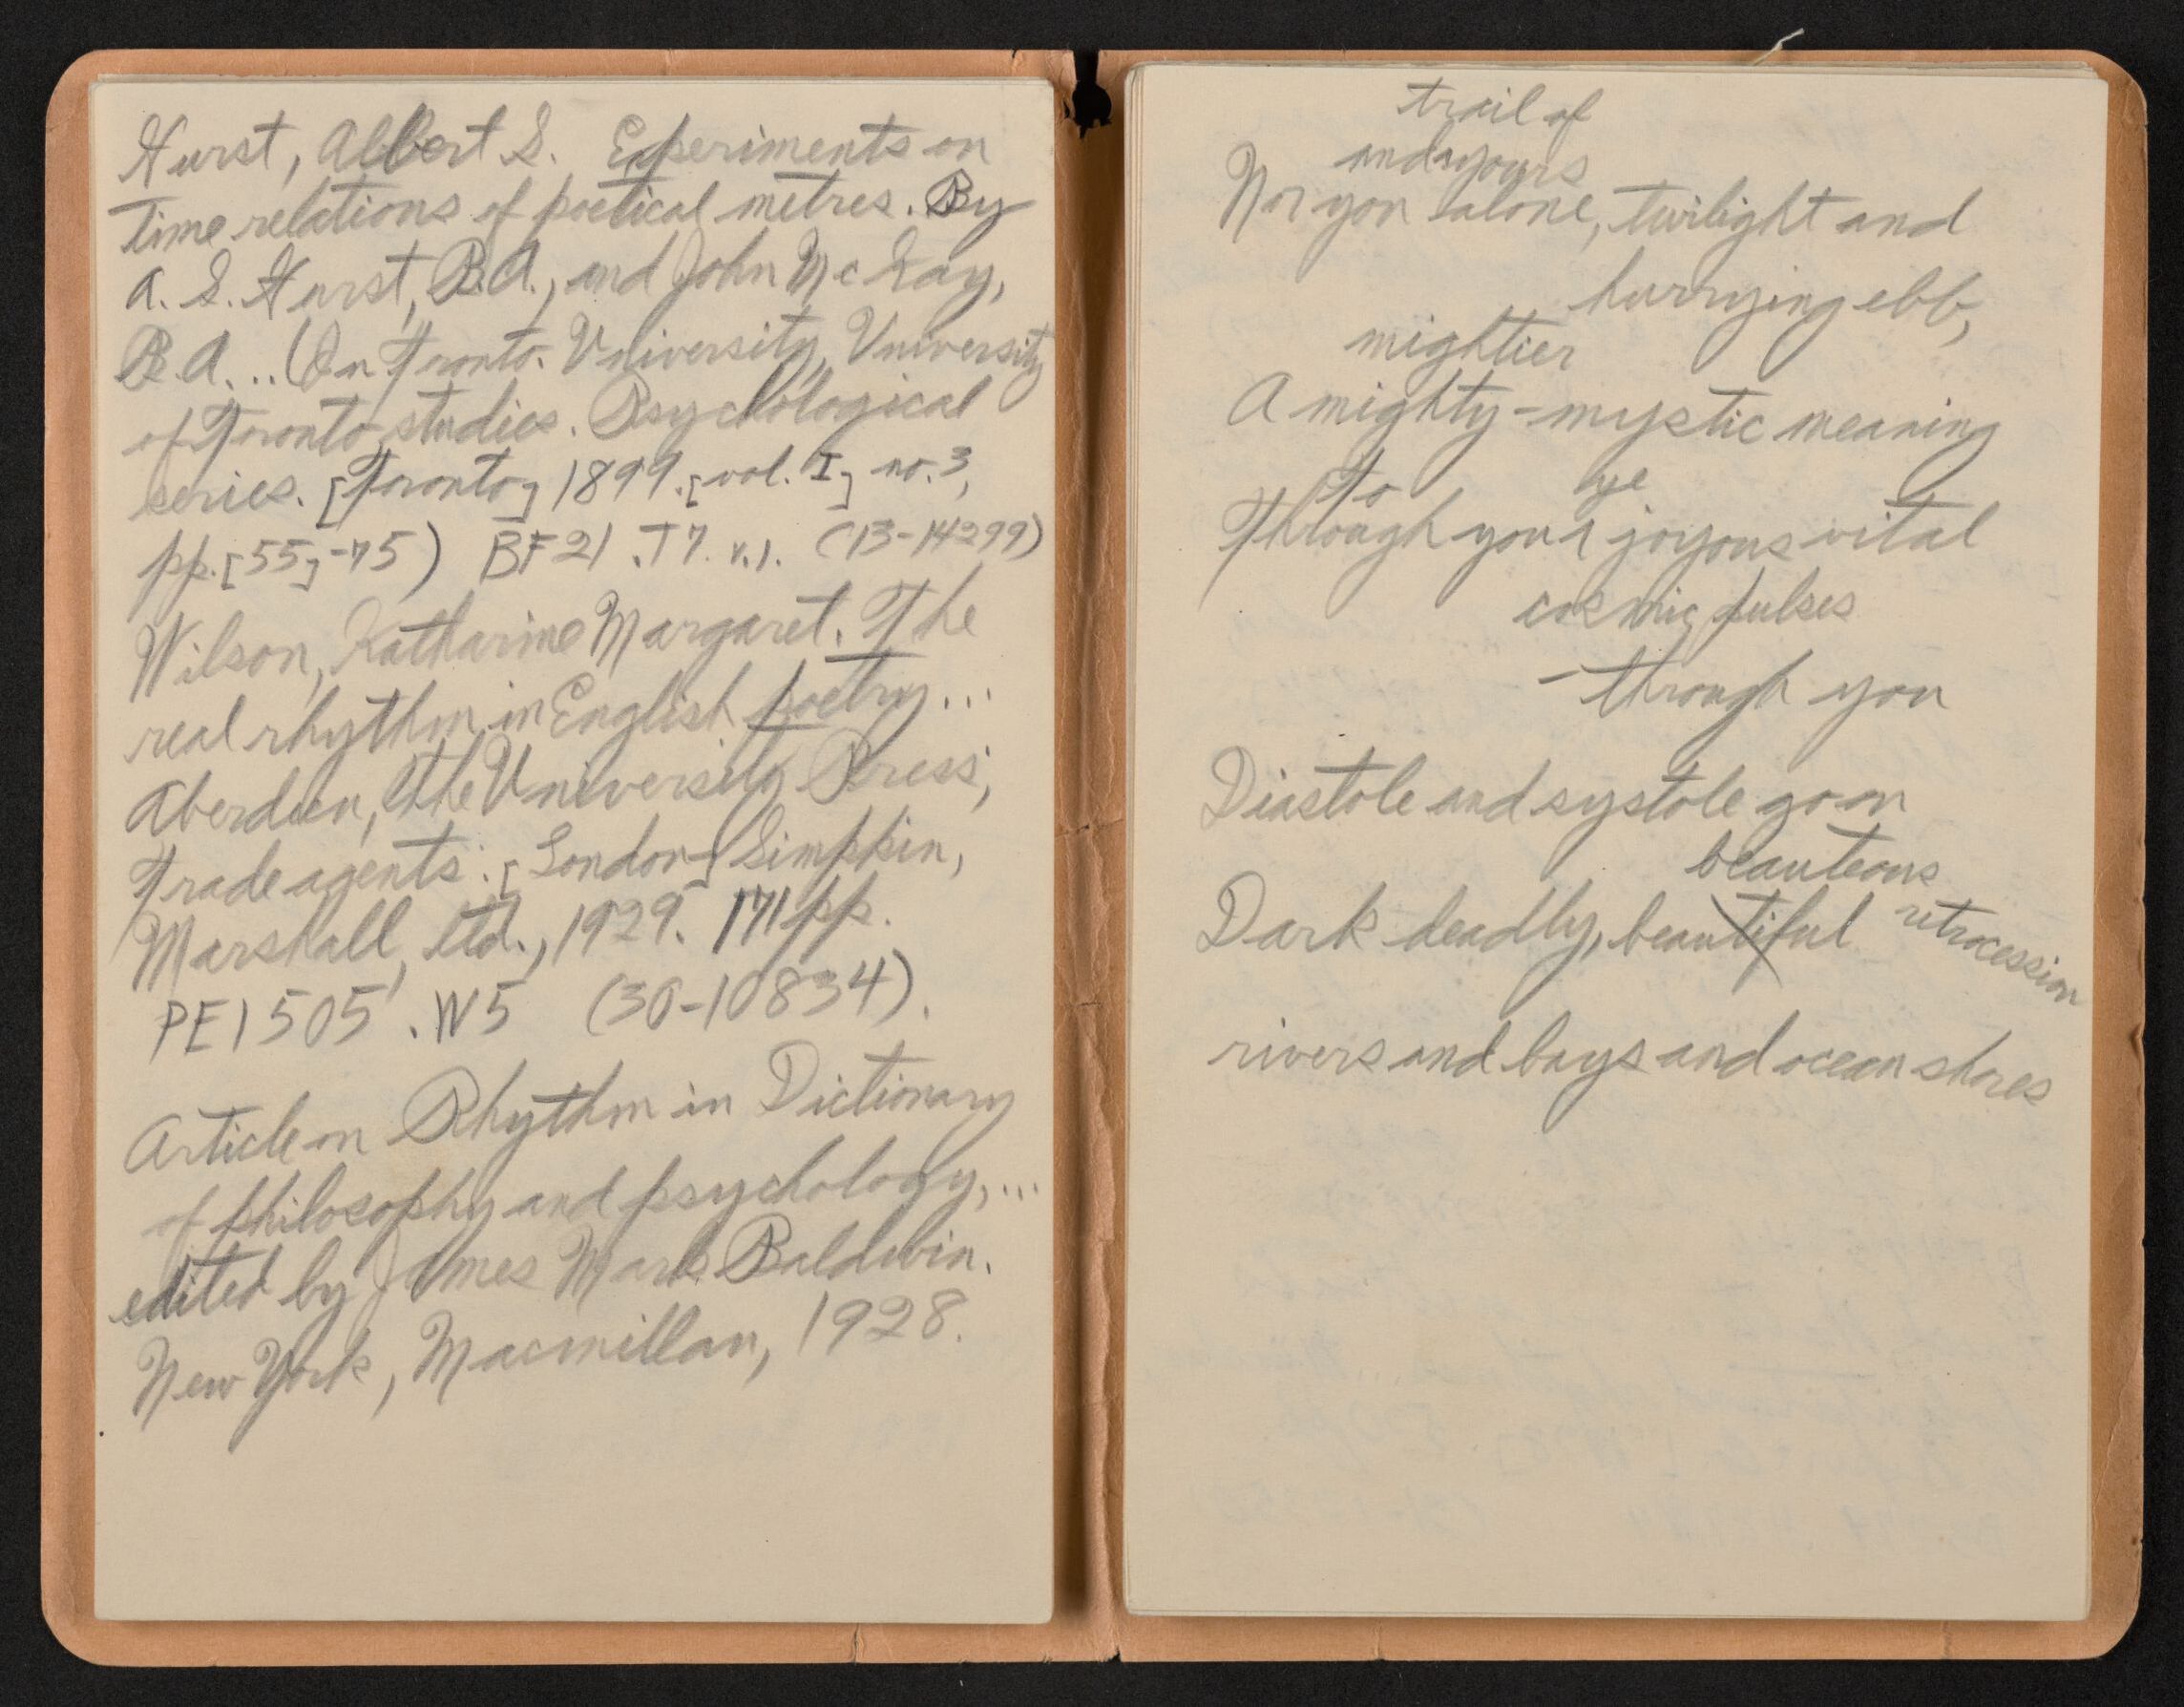 Hurst, Albert S. Experiments on
time relations of poetical metres. By
A. S. Hurst, B.A., and John McKay,
B.A... (In Toronto. University, University
of Toronto studies. Psychological
series. [Toronto] 1899. [vol. I] no. 3,
pp. [55]-75) BF21 .T7. v.1. (13-14299)
Wilson, Katharine Margaret. The
real rhythm in English poetry...
Aberdeen, The University Press;
Trade agents: [London] Simpkin,
Marshall, ltd., 1929. 171 pp.
PE1505 .W5 (30-10834).
Article on Rhythm in Dictionary
of philosophy and psychology,...
edited by James Mark Baldwin.
New York, Macmillan, 1928.
trail of
and yours
Nor you alone, twilight and
hurrying ebb,
mightier
A mighty-mystic meaning
To ye
Through your joyous vital
cosmic pulses
- through you
Diastole and systole go on
beauteous
Dark deadly, beautiful retrocession
rivers and bays and ocean shores